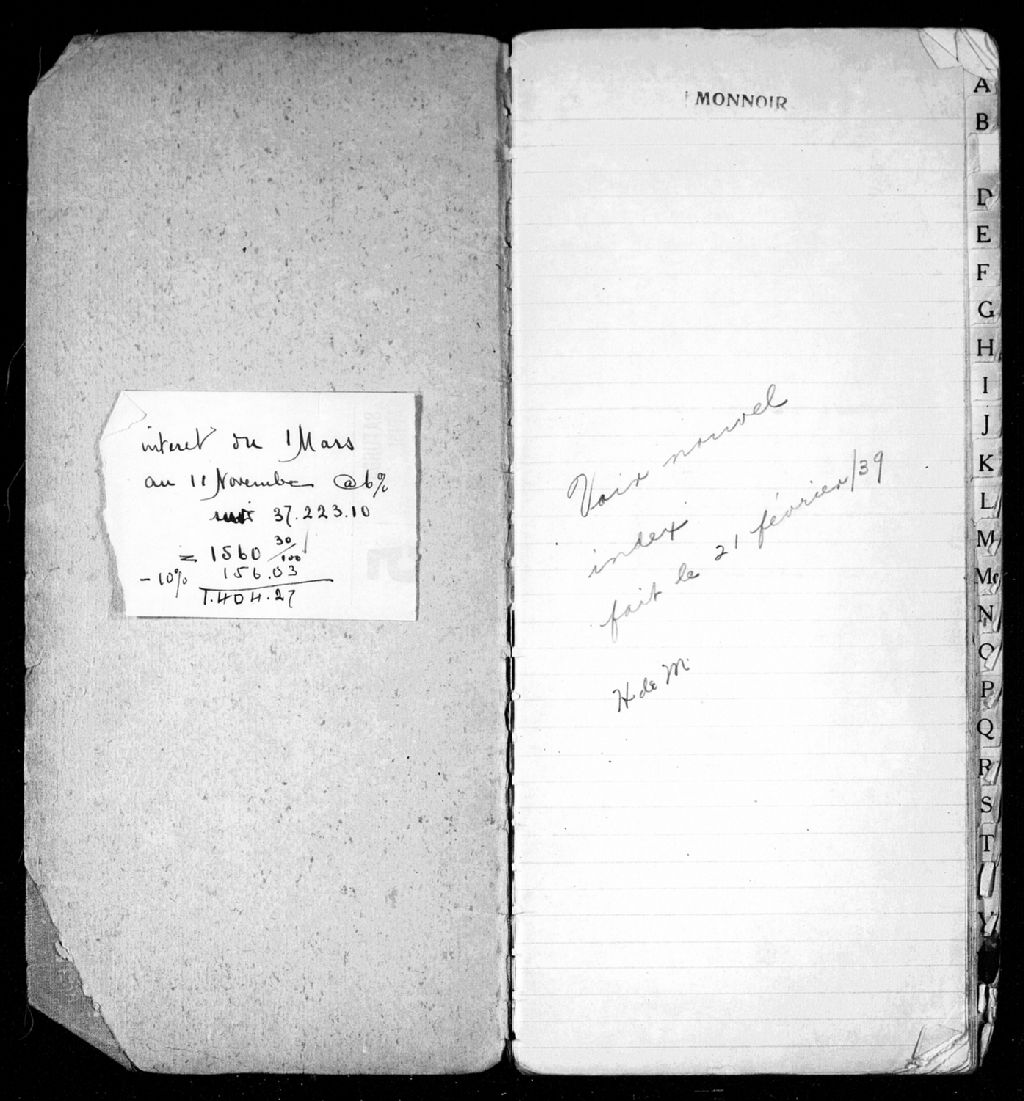 interet du 1 Mars
au 11 Novembre @ 6%
37.223.10
= 1560 30/100
- 10% 156.03
1.404.27
MONNOIR
Voir nouvel
index
fait le 21 février/39
H de M.
A
B
D
E
F
G
H
I
J
K
L
M
Mc
N
O
P
Q
R
S
T